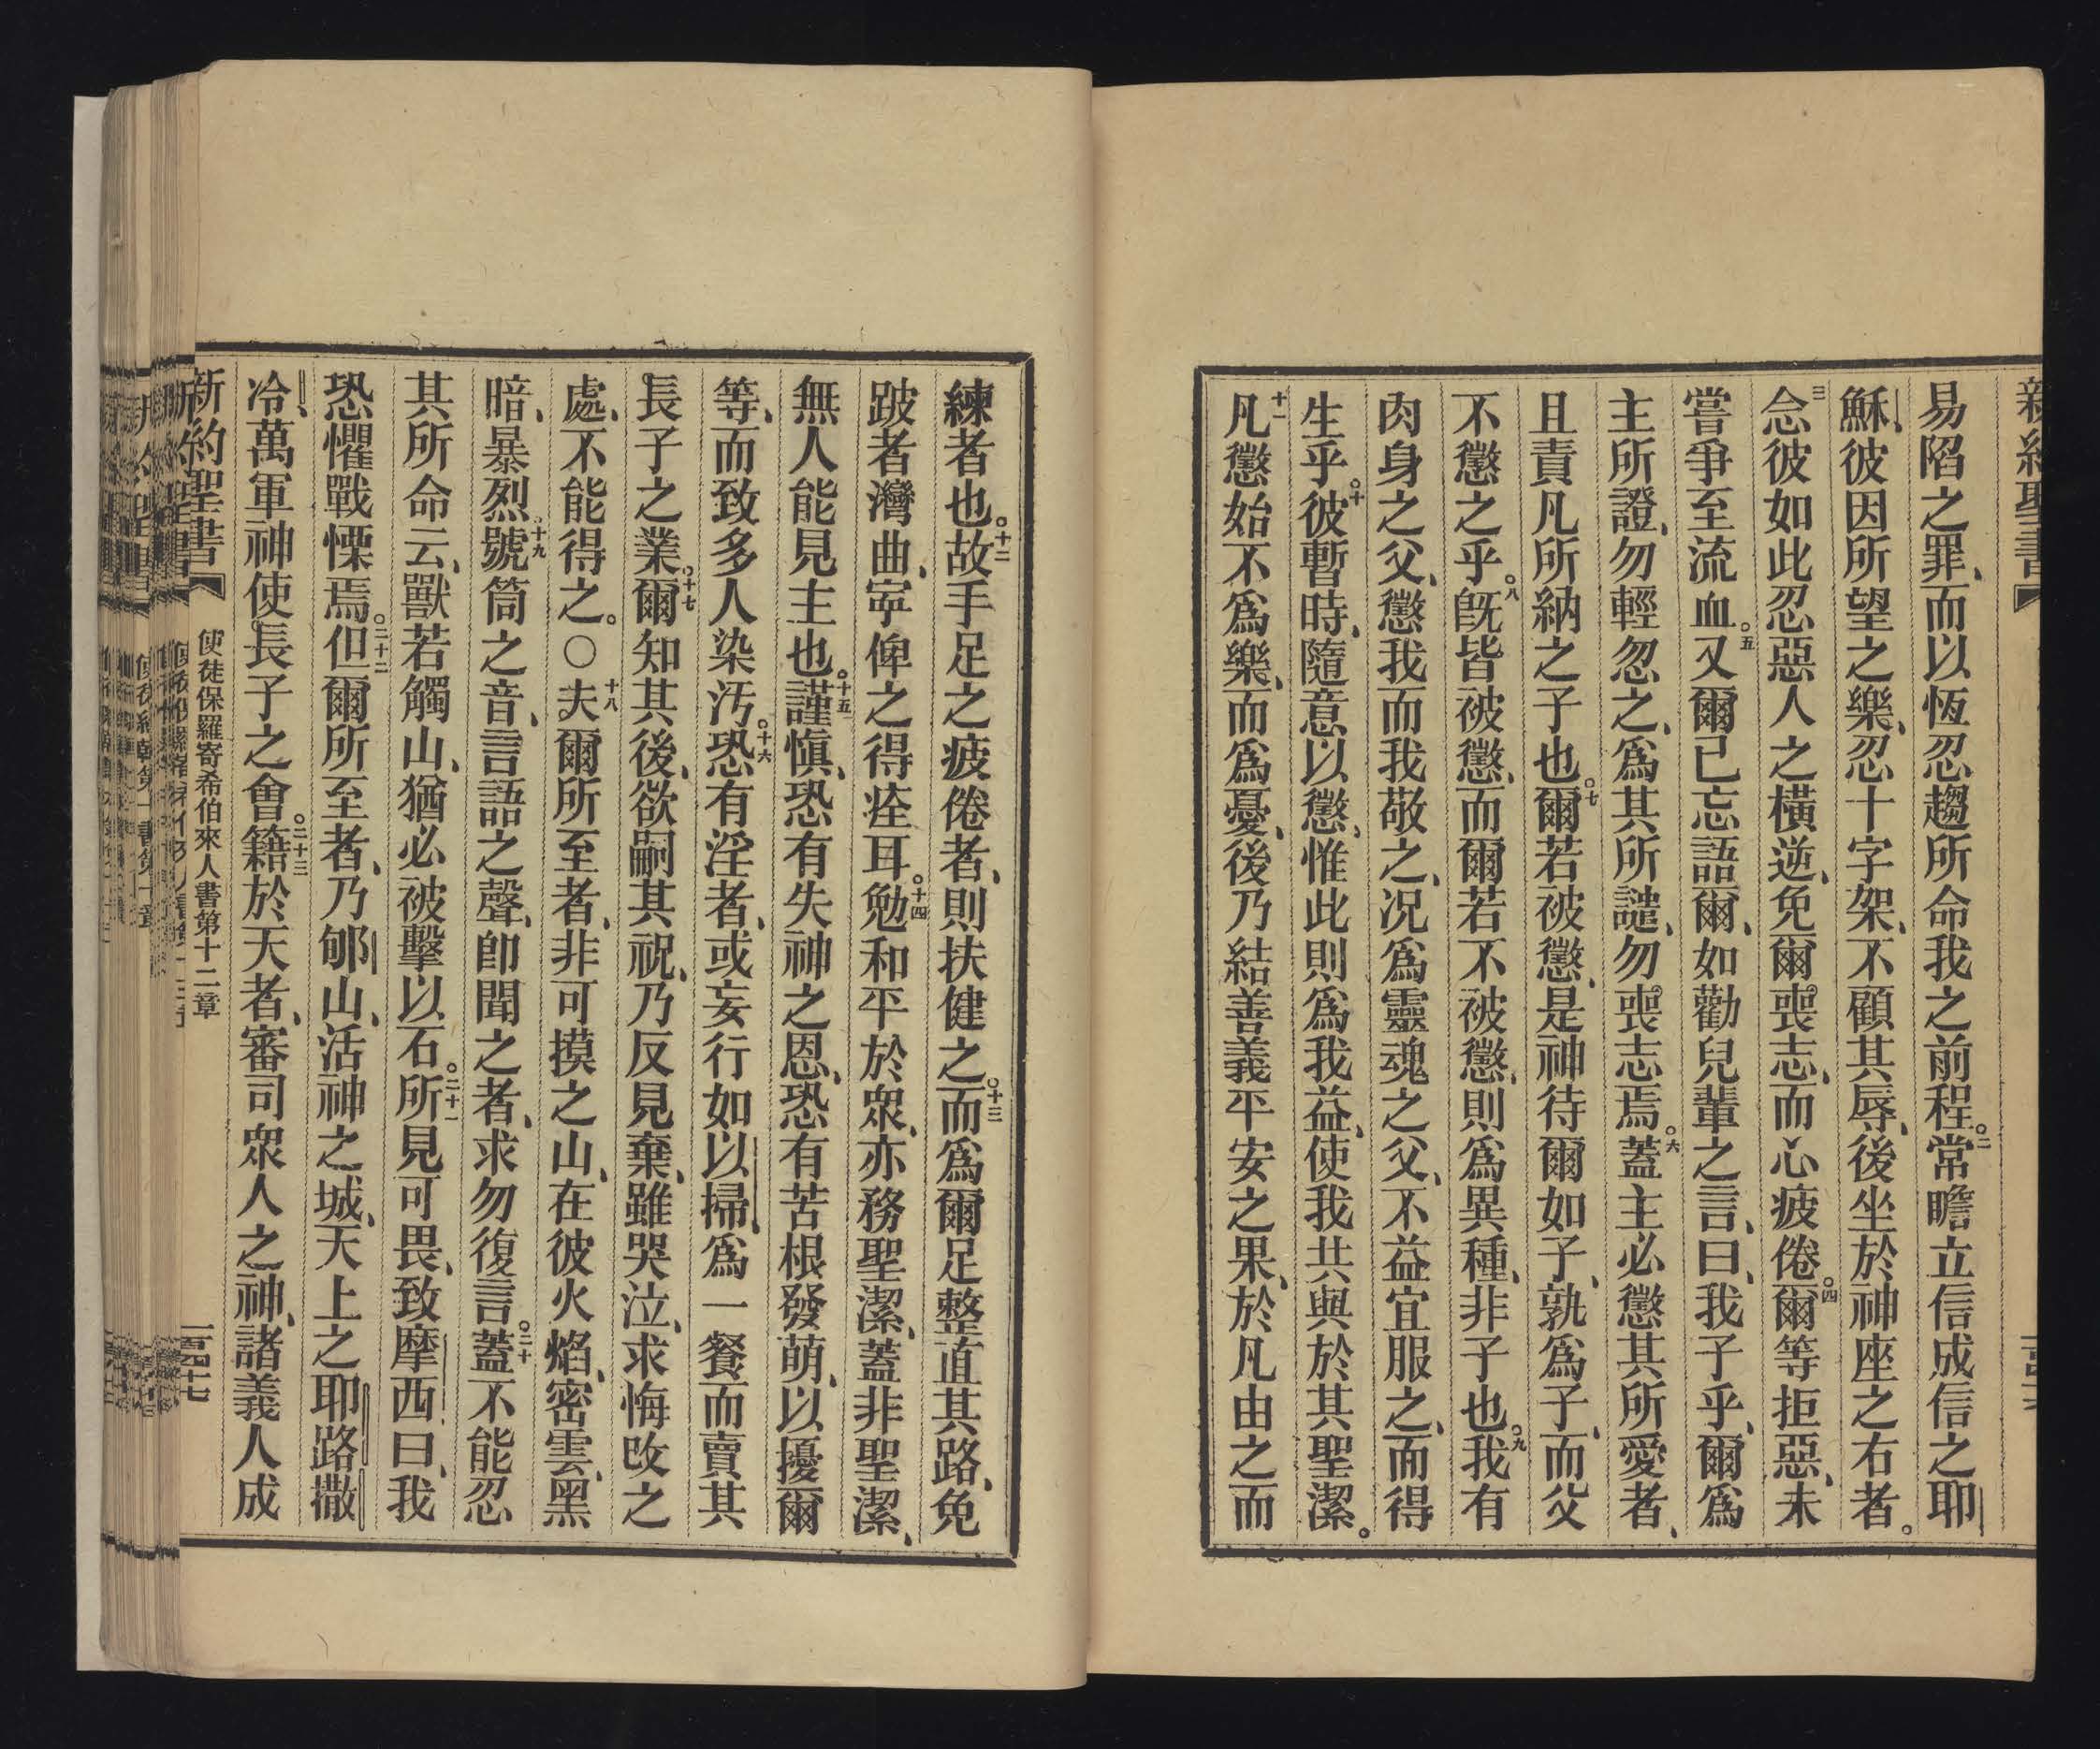 新約聖書
易陷之罪、而以恆忍趨所命我之前程。二常瞻立信成信之耶
穌、彼因所望之樂、忍十字架、不顧其辱、後坐於神座之右者。
三念彼如此忍惡人之橫逆、免爾喪志、而心疲倦。四爾等拒惡、未
嘗爭至流血。五又爾已忘語爾、如勸兒輩之言、曰、我子乎、爾爲
主所證、勿輕忽之、爲其所譴、勿喪志焉。六蓋主必懲其所愛者、
且責凡所納之子也。七爾若被懲、是神待爾如子、孰爲子、而父
不懲之乎。八旣皆被懲、而爾若不被懲、則爲異種、非子也。九我有
肉身之父、懲我而我敬之、况爲靈魂之父、不益宜服之、而得
生乎。十彼暫時、隨意以懲、惟此則爲我益、使我共與於其聖潔。
十一凡懲始不爲樂、而爲憂、後乃結善義平安之果、於凡由之而
練者也。十二故手足之疲倦者、則扶健之。十三而爲爾足整直其路、免
跛者灣曲、寕俾之得痊耳。十四勉和平於衆、亦務聖潔、蓋非聖潔、
無人能見主也。十五謹愼、恐有失神之恩、恐有苦根發萌、以擾爾
等、而致多人染汚。十六恐有淫者、或妄行如以掃、爲一餐而賣其
長子之業。十七爾知其後、欲嗣其祝、乃反見棄、雖哭泣、求悔改之
處、不能得之。○十八夫爾所至者、非可摸之山、在彼火焰、密雲、黑
暗、暴烈、十九號筒之音、言語之聲、卽聞之者、求勿復言。二十蓋不能忍
其所命云、獸若觸山、猶必被擊以石。二十一所見可畏、致摩西曰、我
恐懼戰慄焉。二十二但爾所至者、乃郇山、活神之城、天上之耶路撒
冷、萬軍神使、長子之會。二十三籍於天者、審司衆人之神、諸義人成
新約聖書 使徒保羅寄希伯來人書第十二章 一百四十七